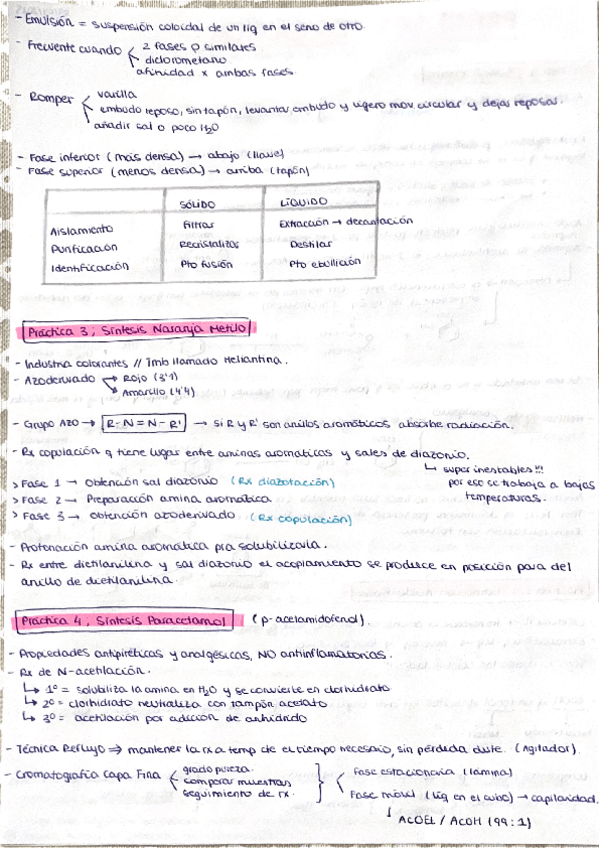 - Emulsión = suspensión coloidal de un liq en el seno de otro.
- Frecuente cuando 2 fases ρ similares
diclorometano
afinidad x ambas fases
- Romper varilla
embudo reposo, sin tapón, levantar embudo y ligero mov circular y dejas reposar.
añadir sal o poco H2O
- Fase inferior (más densa) → abajo (llave)
- Fase superior (menos densa) → arriba (tapón)
SÓLIDO LÍQUIDO
Aislamiento Filtrar Extracción → decantación
Purificación Recristalizar Destilar
Identificación Pto fusión Pto ebullición
Práctica 3; Síntesis Naranja Metilo
- Industria colorantes // Tmb llamado Heliantina.
- Azoderivado → Rojo (3'1)
Amarillo (4'4)
- Grupo AZO → R-N=N-R' → si R y R' son anillos aromáticos absorbe radiación.
- Rx copulación q tiene lugar entre aminas aromáticas y sales de diazonio.
↳ super inestables!!!
por eso se trabaja a bajas
temperaturas.
> Fase 1 → Obtención sal diazonio (Rx diazotación)
> Fase 2 → Preparación amina aromática
> Fase 3 → Obtención azoderivado. (Rx copulación)
- Protonación amina aromática pra solubilizarla.
- Rx entre dietilanilina y sal diazonio el acoplamiento se produce en posición para del
anillo de dietilanilina.
Práctica 4; Síntesis Paracetamol (p-acelamidofenol).
- Propiedades antipiréticas y analgésicas, NO antiinflamatorias.
- Rx de N-acetilación.
↳ 1º = solubiliza la amina en H2O y se convierte en clorhidrato
↳ 2º = clorhidrato neutraliza con tampón acetato
↳ 3º = acetilación por adición de anhídrido
- Técnica Reflujo ⇒ mantener la rx a temp de el tiempo necesario, sin pérdida dste. (Agitador).
- Cromatografía Capa Fina grado pureza.
comparar muestras
seguimiento de rx.
Fase estacionaria (lámina)
Fase móvil (liq en el cubo) → capilaridad.
↓ AcOEt / AcOH (99:1)